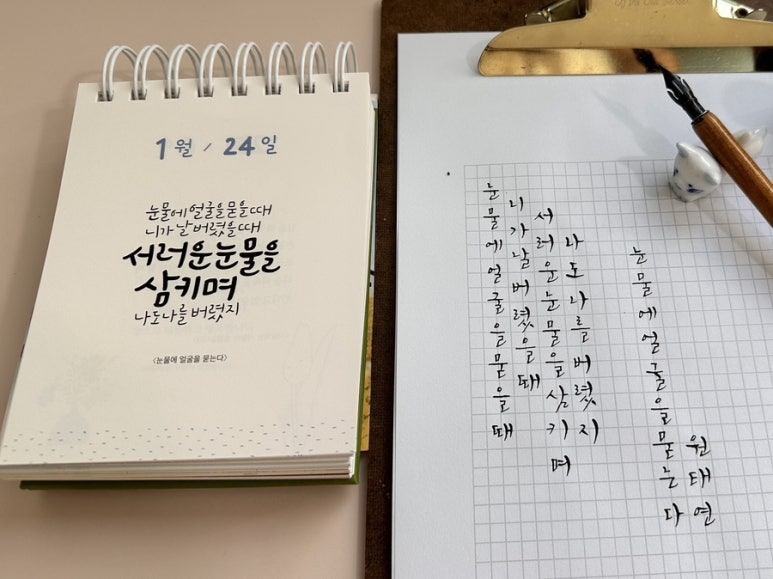 1월 / 24일
눈물에 얼굴을 묻을 때
니가 날 버렸을 때
서러운 눈물을
삼키며
나도 나를 버렸지
〈눈물에 얼굴을 묻는다〉
눈물에얼굴을묻을때
니가날버렸을때
서러운눈물을삼키며
나도나를버렸지
눈물에얼굴을묻는다
원태연